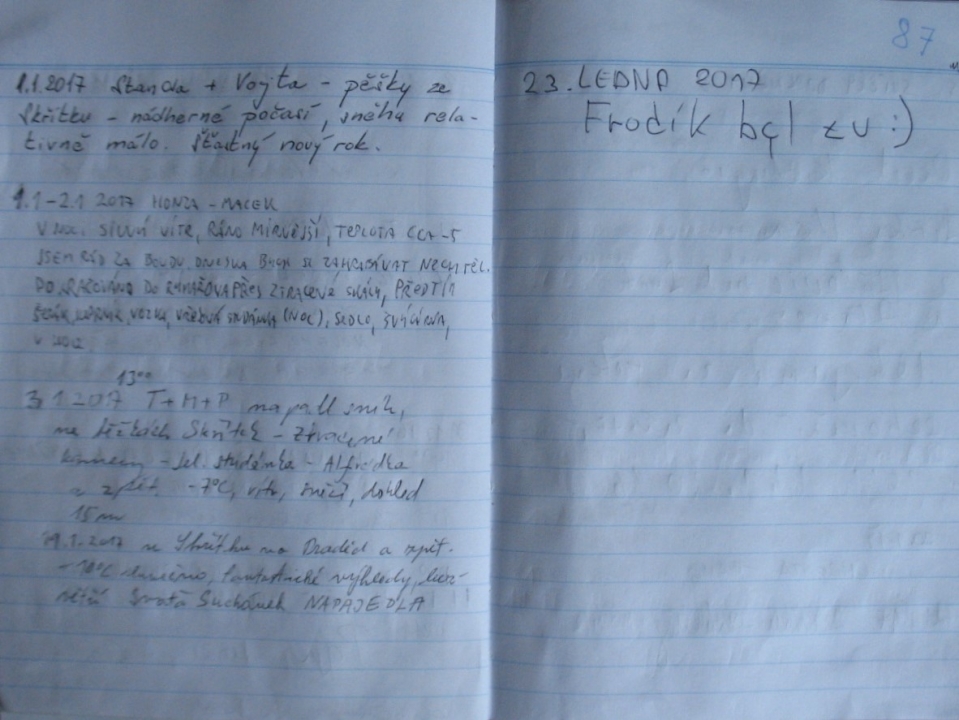 1.1.2017 Standa + Vojta - pěšky ze
Skřítku - nádherné počasí, sněhu rela-
tivně málo. Šťastný nový rok.
1.1-2.1 2017 HONZA - MACEK
V NOCI SILNÝ VÍTR, RÁNO MÍRNĚJŠÍ, TEPLOTA CCA -5
JSEM RÁD ZA BOUDU, DNESKA BYCH SE ZAHRABÁVAT NECHTĚL.
DO RÝMAŘOVA PŘES ZTRACENÉ SKÁLY, PŘEDTÍM
(NOC), SEDLO, ŠVÝCÁRNA,
13⁰⁰
3.1 2017 T+M+P napadl sníh,
na běžkách Skřítek - Ztracené
kameny - Jel. studánka - Alfrédka
a zpět. -7°C, vítr, sněží, dohled
15 m
19.1.2017 ze Skřítku na Praděd a zpět.
-10°C slunečno, fantastické výhledy,
Suchánek NAPAJEDLA
87
23. LEDNA 2017
Frodík był tu :)